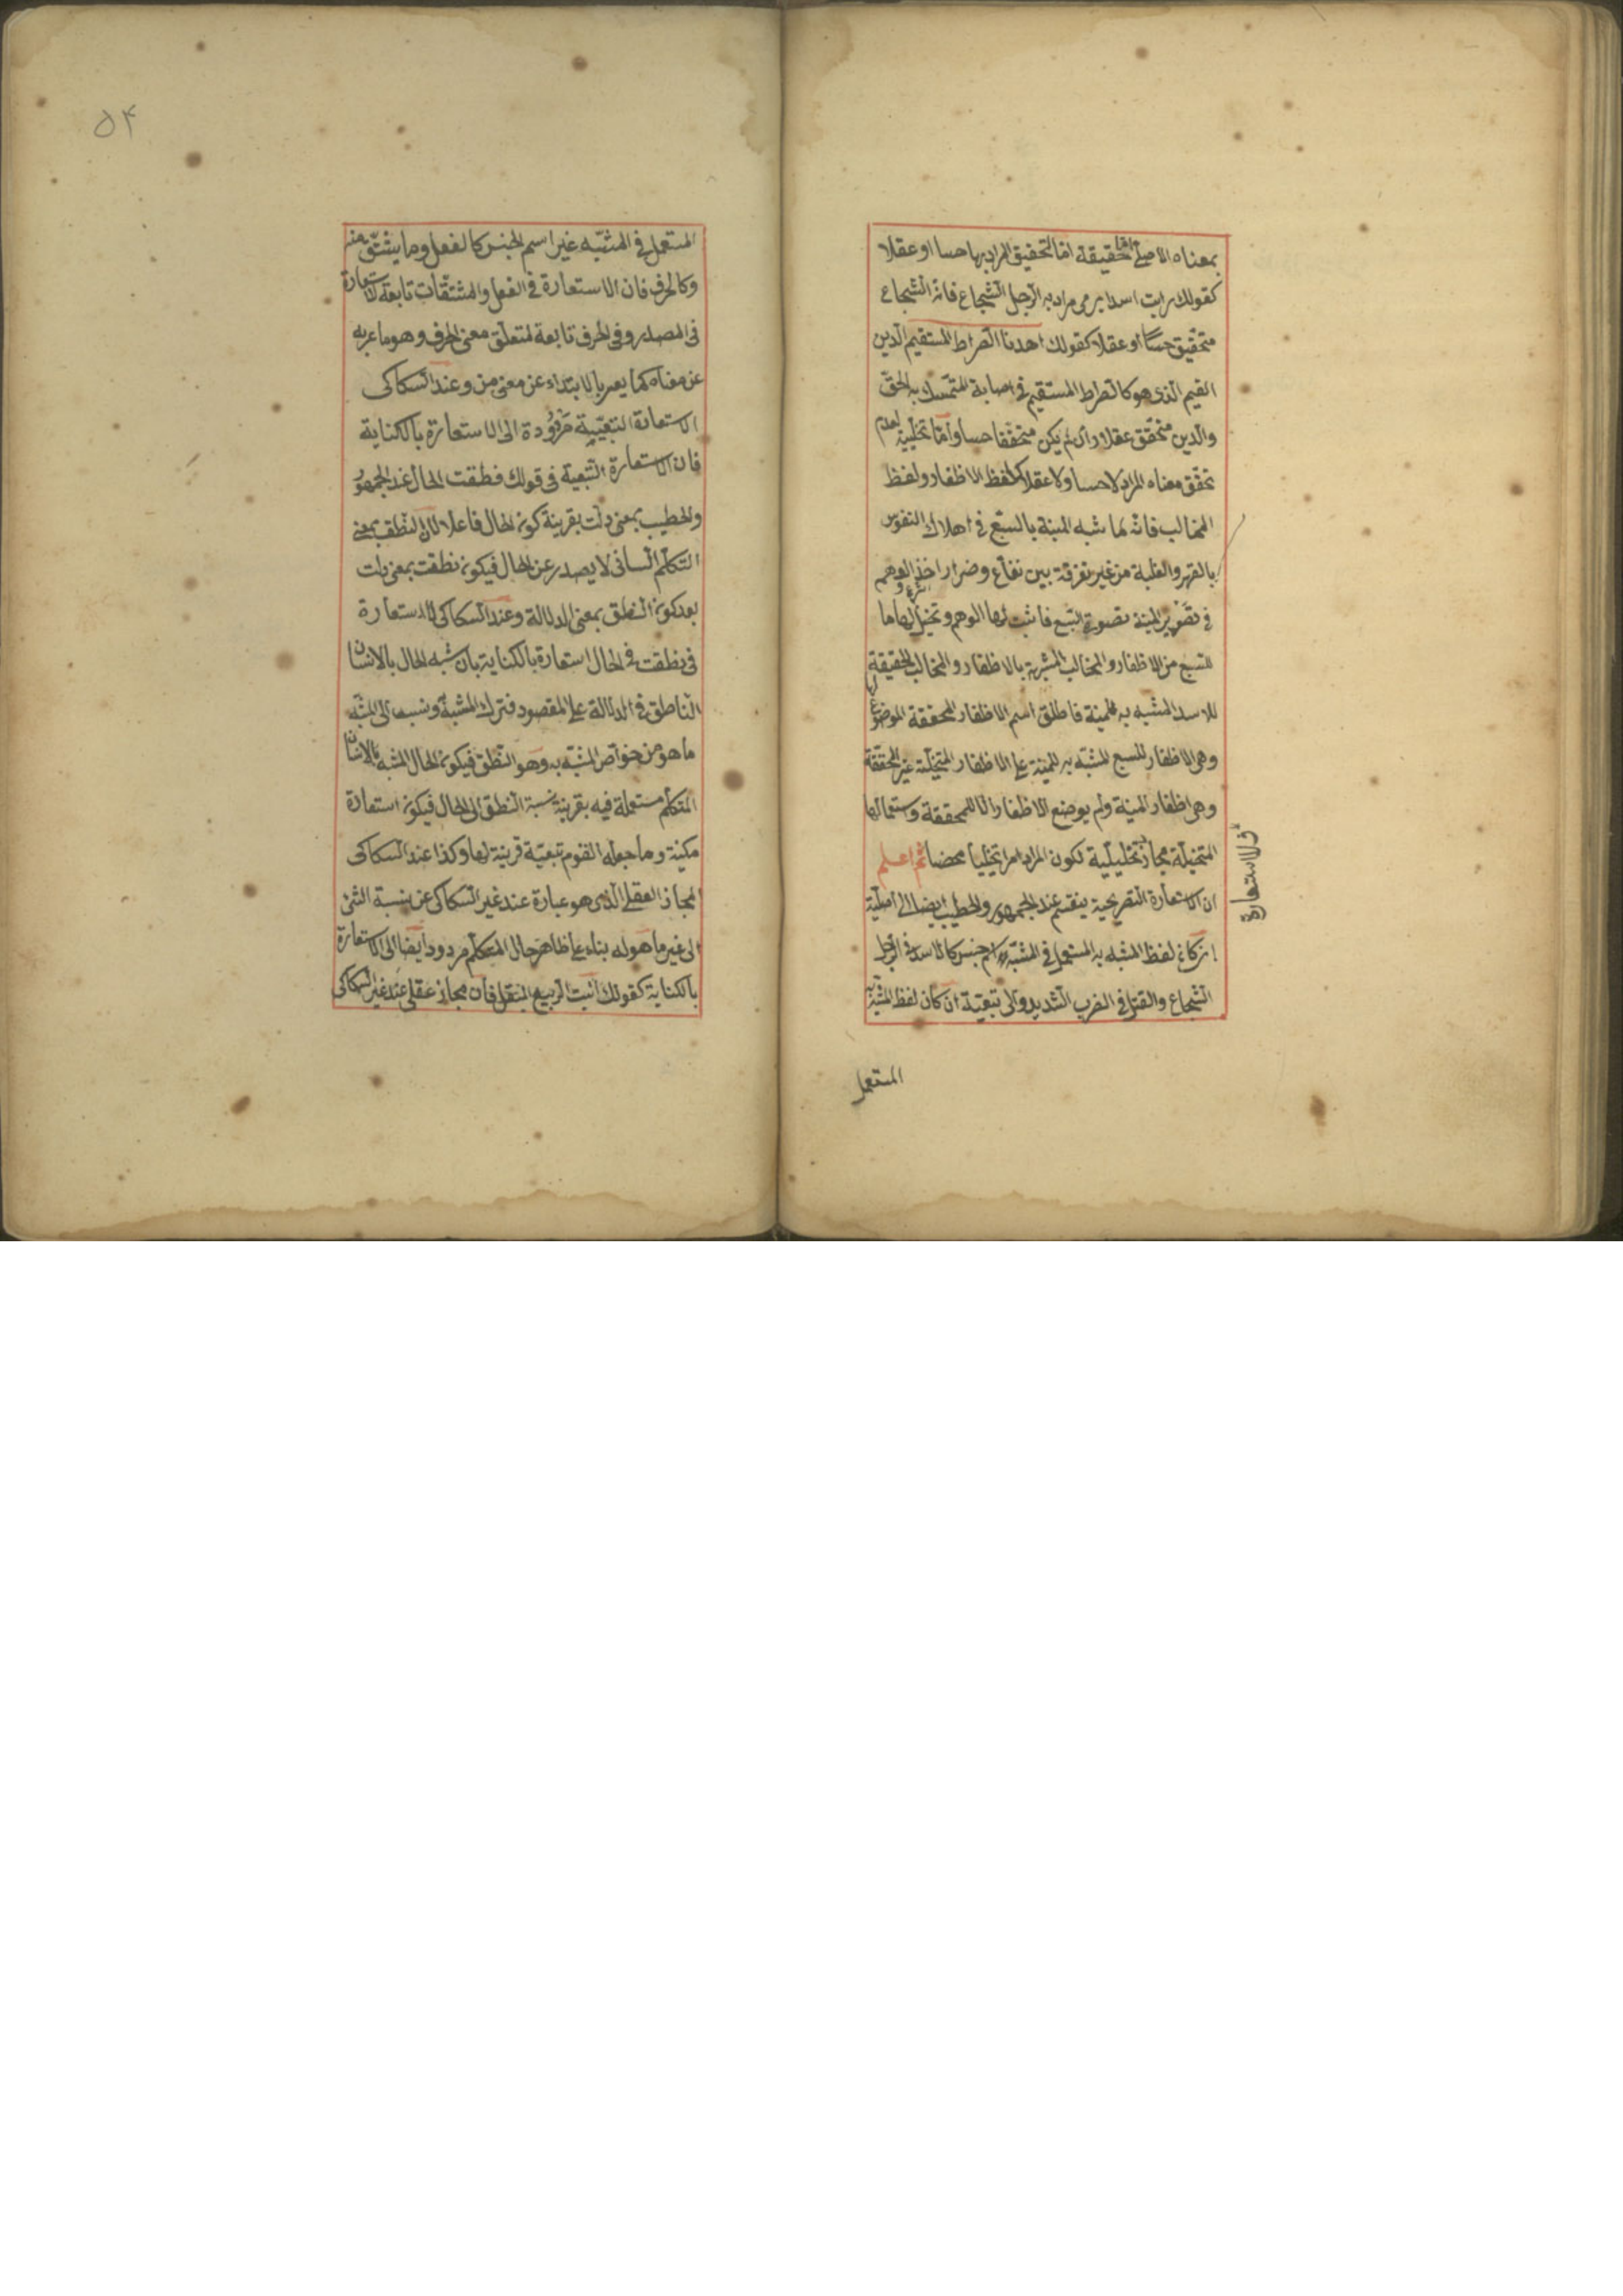 بمعناه الاصلى اما حقيقة اما لتحقيق المراد بها حسا او عقلا
كقولك رايت اسدا يرمى مراد به الرجل الشجاع فانّ الشجاع
متحقّق حسّا او عقلا كقولك اهدنا الصراط المستقيم الدين
القيم الذى هو كالصراط المستقيم فى اصابة المتمسك به الحقّ
والدين متحقّق عقلا وان لم يكن متحقّقا حسا وامّا تخييلية لعدم
تحقّق معناه المراد لاحسا ولا عقلا كلفظ الاظفار ولفظ
المخالب فانّه لما شبه المنية بالسبع فى اهلاك النفوس
بالقهر والغلبة من غير تفرقة بين نفاع وضرار اخذ الوهم
فى تصوير المنية بصورة السبع فاثبت لها الوهم وتخيّل لها ما
للسبع من الاظفار والمخالب المشبهة بالاظفار والمخالب الحقيقة
للاسد المشبه به للمنية فاطلق اسم الاظفار المحققة الموضوع لها
وهى الاظفار للسبع المشبّه به للمنية على الاظفار المتخيّلة غير المحققة
وهى اظفار المنية ولم يوضع الاظفار الا للمحققة واستعمالها
المتخيّلة مجاز تخييلية لكون المراد امرا تخييليا محضا ثم اعلم
ان الاستعارة التصريحية ينقسم عند الجمهور والخطيب ايضا الى اصلية
ان كان لفظ المشبه به المستعمل فى المشبّه اسم جنس كالاسد فى الرجل
الشجاع والقتل فى الضرب الشديد والى تبعيّة ان كان لفظ المشبّه به
المستعمل
فى الاستعارة
٥٤
المستعمل فى المشبّه غير اسم الجنس كالفعل وما يشتقّ منه
وكالحرف فان الاستعارة فى الفعل والمشتقّات تابعة للاستعارة
فى المصدر وفى الحرف تابعة لمتعلّق معنى الحرف وهو ما عبر به
عن معناه كما يعبر بالابتداء عن معنى من وعند السكاكى
الاستعارة التبعيّة مردودة الى الاستعارة بالكناية
فان الاستعارة التبعية فى قولك فنطقت الحال عند الجمهور
والخطيب بمعنى دلّت بقرينة كون الحال فاعلا لان النطق بمعنى
التكلّم اللسانى لا يصدر عن الحال فيكون نطقت بمعنى دلت
بعد كون النطق بمعنى الدلالة وعند السكاكى الاستعارة
فى نطقت فى الحال استعارة بالكناية بان شبه الحال بالانسان
الناطق فى الدلالة على المقصود فترك المشبه به ونسب الى المشبّه
ما هو من خواص المشبّه به وهو النّطق فيكون الحال المشبه بالانسان
المتكلّم مستعملة فيه بقرينة نسبة النطق الى الحال فيكون استعارة
مكنية وما جعله القوم تبعيّة قرينة لها وكذا عند السكاكى
المجاز العقلى الّذى هو عبارة عند غير السكاكى عن نسبة الشئ
الى غير ما هو له بناء على ظاهر حال المتكلّم مردود ايضا الى الاستعارة
بالكناية كقولك انبت الربيع البقل فان مجاز عقلى عند غير السكاكى